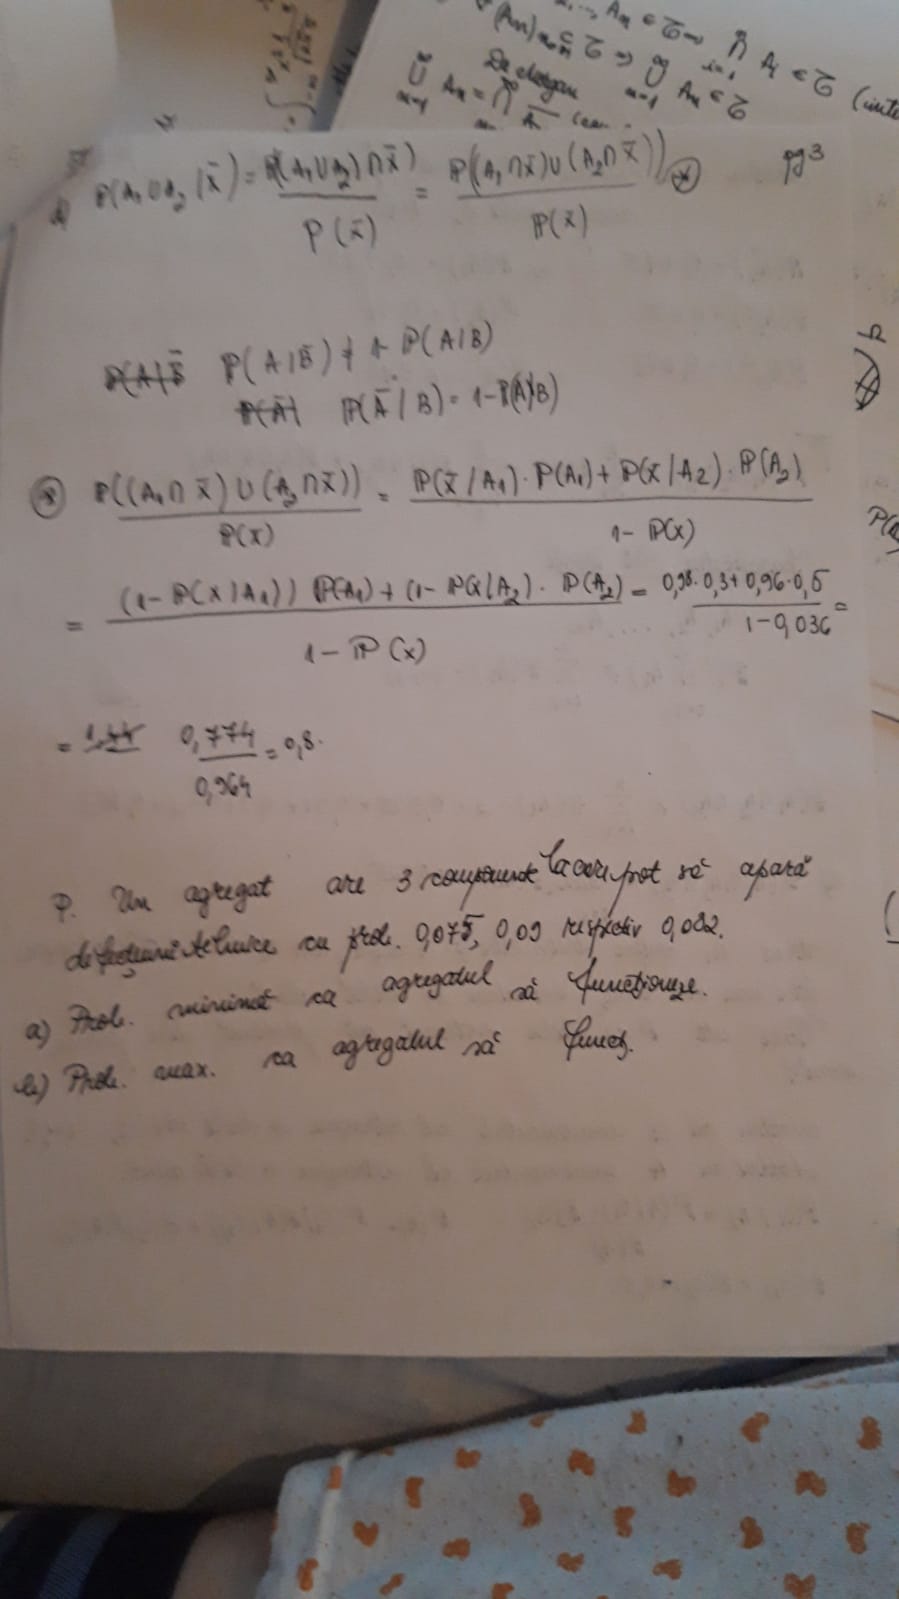 A_n ∈ τ ⇒ ∩ A_i ∈ τ
(A_n)_n ⊂ τ ⇒ ∪ A_n ∈ τ
De Morgan
∪ A_n = ∩
pg 3
d) P(A₁∪A₂ | x̄) = P((A₁∪A₂)∩x̄) / P(x̄) = P((A₁∩x̄)∪(A₂∩x̄)) / P(x̄) ⊛
P(A|B̄ P(A|B̄) ≠ 1 - P(A|B)
P(Ā| P(Ā|B) = 1-P(A|B)
⊛ P((A₁∩x̄)∪(A₂∩x̄)) / P(x̄) = P(x̄/A₁)·P(A₁)+P(x̄/A₂)·P(A₂) / 1-P(x)
= (1-P(x|A₁)) P(A₁)+(1-P(x|A₂)·P(A₂) / 1-P(x) = 0,98·0,3+0,96·0,5 / 1-0,036 =
= 1,44 0,774 / 0,964 = 0,8.
P. Un agregat are 3 componente la care pot să apară
defecțiuni tehnice cu prob. 0,075, 0,09 respectiv 0,082.
a) Prob. minimă ca agregatul să funcționeze.
b) Prob. max. ca agregatul să funcț.